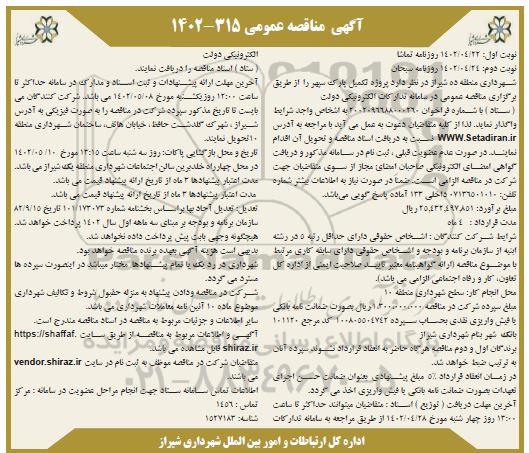 آگهی مناقصه عمومی ۳۱۵-۱۴۰۲
نوبت اول: ۱۴۰۲/۰۴/۲۲ روزنامه تماشا
نوبت دوم: ۱۴۰۲/۰۴/۲۴ روزنامه سبحان
شهرداری منطقه ده شیراز در نظر دارد پروژه تکمیل پارک سپهر را از طریق
برگزاری مناقصه عمومی در سامانه تدارکات الکترونیکی دولت
( ستاد ) با شماره فراخوان ۲۰۰۲۰۹۶۶۸۸۰۰۰۲۶۰ به اشخاص واجد شرایط
واگذار نماید. لذا از کلیه متقاضیان دعوت به عمل می آید با مراجعه به آدرس
WWW.Setadiran.ir نسبت به دریافت اسناد مناقصه و تحویل آن اقدام
نمایند. در صورت عدم عضویت قبلی، ثبت نام در سامانه مذکور و دریافت
گواهی امضای الکترونیکی صاحبان امضای مجاز از سوی متقاضیان جهت
شرکت در مناقصه الزامی است. ضمنا در صورت نیاز به اطلاعات بیشتر شماره
تلفن: ۱۰-۰۷۱۳۶۵۰۱۰۱ داخلی ۱۳۳ آماده پاسخ گویی می‌باشد.
مبلغ برآورد: ۲۵,۴۳۲,۴۹۷,۸۵۱ ریال
مدت قرارداد : ۴ ماه
شرایط شرکت کنندگان : اشخاص حقوقی دارای حداقل رتبه ۵ در رشته
ابنیه از سازمان برنامه و بودجه و اشخاص حقوقی دارای سابقه کاری مرتبط
با موضوع مناقصه (ارائه گواهینامه معتبر تایید صلاحیت ایمنی از اداره کل
تعاون، کار و رفاه اجتماعی الزامی می باشد).
محل انجام کار: سطح شهرداری منطقه ۱۰
مبلغ سپرده شرکت در مناقصه ۱,۳۰۰,۰۰۰,۰۰۰ ریال بصورت ضمانت نامه بانکی
یا فیش واریزی نقدی بحساب سپرده ۱۰۰۸۰۵۵۰۴۷۴۲ کد مرجع ۱۰۱۱۲۰
بانک شهر بنام شهرداری شیراز
برندگان اول و دوم مناقصه هرگاه حاضر به انعقاد قرارداد نشوند سپرده آنان
به ترتیب ضبط خواهد شد.
در زمان انعقاد قرارداد ۵٪ مبلغ پیشنهادی بعنوان ضمانت حسن اجرای
تعهدات بصورت ضمانت نامه بانکی یا فیش واریزی اخذ می گردد.
آخرین مهلت دریافت ( توزیع ) اسناد : متقاضیان میتوانند حداکثر تا ساعت
۱۳:۰۰ روز چهار شنبه مورخ ۱۴۰۲/۰۴/۲۸ از طریق مراجعه به سامانه تدارکات
الکترونیکی دولت
( ستاد ) اسناد مناقصه را دریافت نمایند.
آخرین مهلت ارائه پیشنهادات و ثبت اسناد و مدارک در سامانه حداکثر تا
ساعت ۱۲:۰۰ روز یکشنبه مورخ ۱۴۰۲/۰۵/۰۸ می باشد. شرکت کنندگان می
بایست تا تاریخ مذکور سپرده شرکت در مناقصه را به صورت فیزیکی به آدرس
شیراز ، شهرک گلدشت حافظ، خیابان هاتف، ساختمان شهرداری منطقه
۱۰ تحویل نمایند.
تاریخ و محل بازگشایی پاکات: روز سه شنبه ساعت ۱۳:۱۵ مورخ ۱۴۰۲/۰۵/۱۰
در محل چهارراه خلدبرین سالن اجتماعات شهرداری منطقه یک شیراز می باشد.
مدت اعتبار پیشنهادها ۳ ماه از تاریخ ارائه پیشنهاد قیمت می باشد.
مدت اعتبار پیشنهادها ۳ ماه از تاریخ ارائه پیشنهاد قیمت می باشد.
تعدیل: تعدیل آحاد بها براساس بخشنامه شماره ۱۰۱/۱۷۳۰۷۳ تاریخ ۸۲/۹/۱۵
سازمان برنامه و بودجه بر مبنای سه ماهه اول سال ۱۴۰۲ پرداخت خواهد شد.
هیچگونه وجهی بابت پیش پرداخت داده نخواهد شد.
بدیهی است هزینه آگهی بعهده برنده مناقصه خواهد بود.
شهرداری در رد یک یا تمام پیشنهادها مختار میباشد در اینصورت سپرده ها
مسترد می گردد.
شرکت در مناقصه و دادن پیشنهاد به منزله حقبول شروط و تکالیف شهرداری
موضوع ماده ۱۰ آئین نامه معاملات شهرداری می باشد.
سایر اطلاعات و جزئیات مربوط به مناقصه در اسناد مناقصه مندرج است.
آگهی و اطلاعات مربوط به مناقصه از طریق سایت https://shaffaf.
shiraz.ir قابل مشاهده می باشد.
متقاضیان شرکت در مناقصه موظف به ثبت نام در سایت vendor.shiraz.ir
می باشند.
اطلاعات تماس سامانه ستاد جهت انجام مراحل عضویت در سامانه : مرکز
تماس : ۱۴۵۶
شناسه: ۱۵۲۷۱۸۳
اداره کل ارتباطات و امور بین الملل شهرداری شیراز